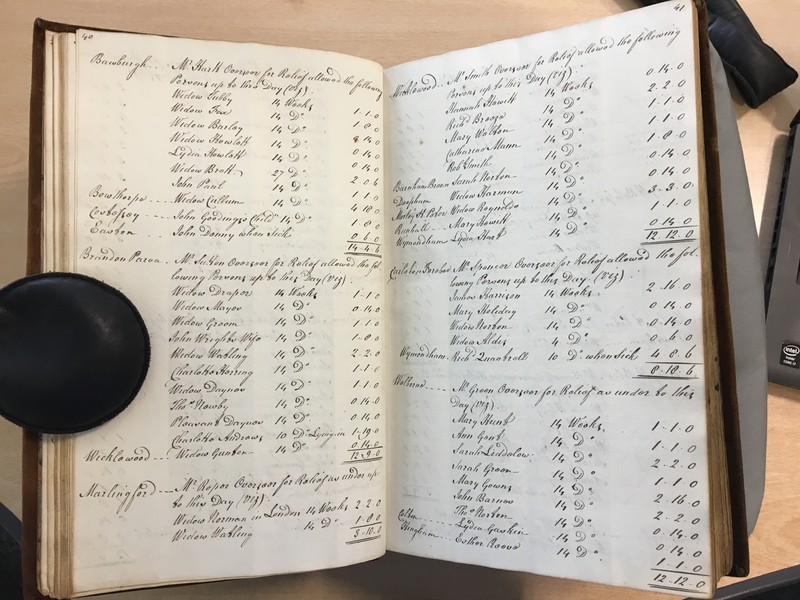 40
Bawburgh Mr. Hart Overseer for Relief allowed the following
Persons up to this Day (Viz)
Widow Tubby 14 Weeks 1-1-0
Widow Fox 14 Do. 1-8-0
Widow Barley 14 Do. 0-14-0
Widow Howlett 14 Do. 0-14-0
Lydia Howlett 14 Do. 0-14-0
Widow Brett 27 Do. 2-0-6
John Paul 14 Do.
Bowthorpe Widow Cullum 14 Do. 1-1-0
Costessey John Goodings Child 14 Do.
Easton John Denny when Sick 0-6-0
14-4-6
Brandon Parva Mr. Overseer for Relief allowed the fol-
lowing Persons up to this Day (Viz)
Widow Draper 14 Weeks 1-1-0
Widow Mayor 14 Do. 0-14-0
Widow Groom 14 Do. 1-1-0
John Wrights Wife 14 Do. 1-8-0
Widow Watling 14 Do. 2-2-0
Charlotte Herring 14 Do. 1-1-0
Widow Daynes 14 Do. 1-1-0
Thos. Newby 14 Do. 0-14-0
Pleasant Daynes 14 Do. 0-14-0
Charlotte Andrews 10 Do. Lying in 1-19-0
Wicklewood Widow Gunton 14 Do. 0-14-0
12-9-0
Marlingford Mr. Roper Overseer for Relief as under up
to this Day (Viz)
Widow Norman in London 14 Weeks 2-2-0
Widow Watling 14 Do. 1-8-0
3-10-0
41
Wicklewood Mr. Smith Overseer for Relief allowed the following
Persons up to this Day (Viz)
Hannah Howett 14 Weeks 0-14-0
Richd. 14 Do. 2-2-0
Mary Walton 14 Do. 1-1-0
Catharine Mann 14 Do. 1-8-0
Robt. Smith 14 Do. 0-14-0
Barnham Broom Sarah Norton 14 Do. 0-14-0
Deopham Widow Harman 14 Do. 3-3-0
Morley St. Peter Widow Reynolds 14 Do. 1-1-0
Runhall Mary Howett 14 Do. 0-14-0
Wymondham Lydia Hunt 14 Do.
12-12-0
Carleton Forehoe Mr. Spencer Overseer for Relief allowed the fol-
lowing Persons up to this Day (Viz)
James Harrison 14 Weeks 2-16-0
Mary Holiday 14 Do. 0-14-0
Widow Norton 14 Do. 0-14-0
Widow Alder 4 Do. 0-6-0
Wymondham Richd. Quantrell 10 Do. when Sick 4-8-6
8-18-6
Welborne Mr. Green Overseer for Relief as under to this
Day (Viz)
Mary Hunt 14 Weeks 1-1-0
Ann Gent 14 Do. 1-1-0
Sarah Liddelow 14 Do. 2-2-0
Sarah Groom 14 Do. 1-1-0
Mary Gowns 14 Do. 2-16-0
John Barnes 14 Do. 2-2-0
Thos. Norton 14 Do. 0-14-0
Colton Lydia Gaskin 14 Do. 0-14-0
Hingham Esther Reeve 14 Do. 1-1-0
12-12-0
intel